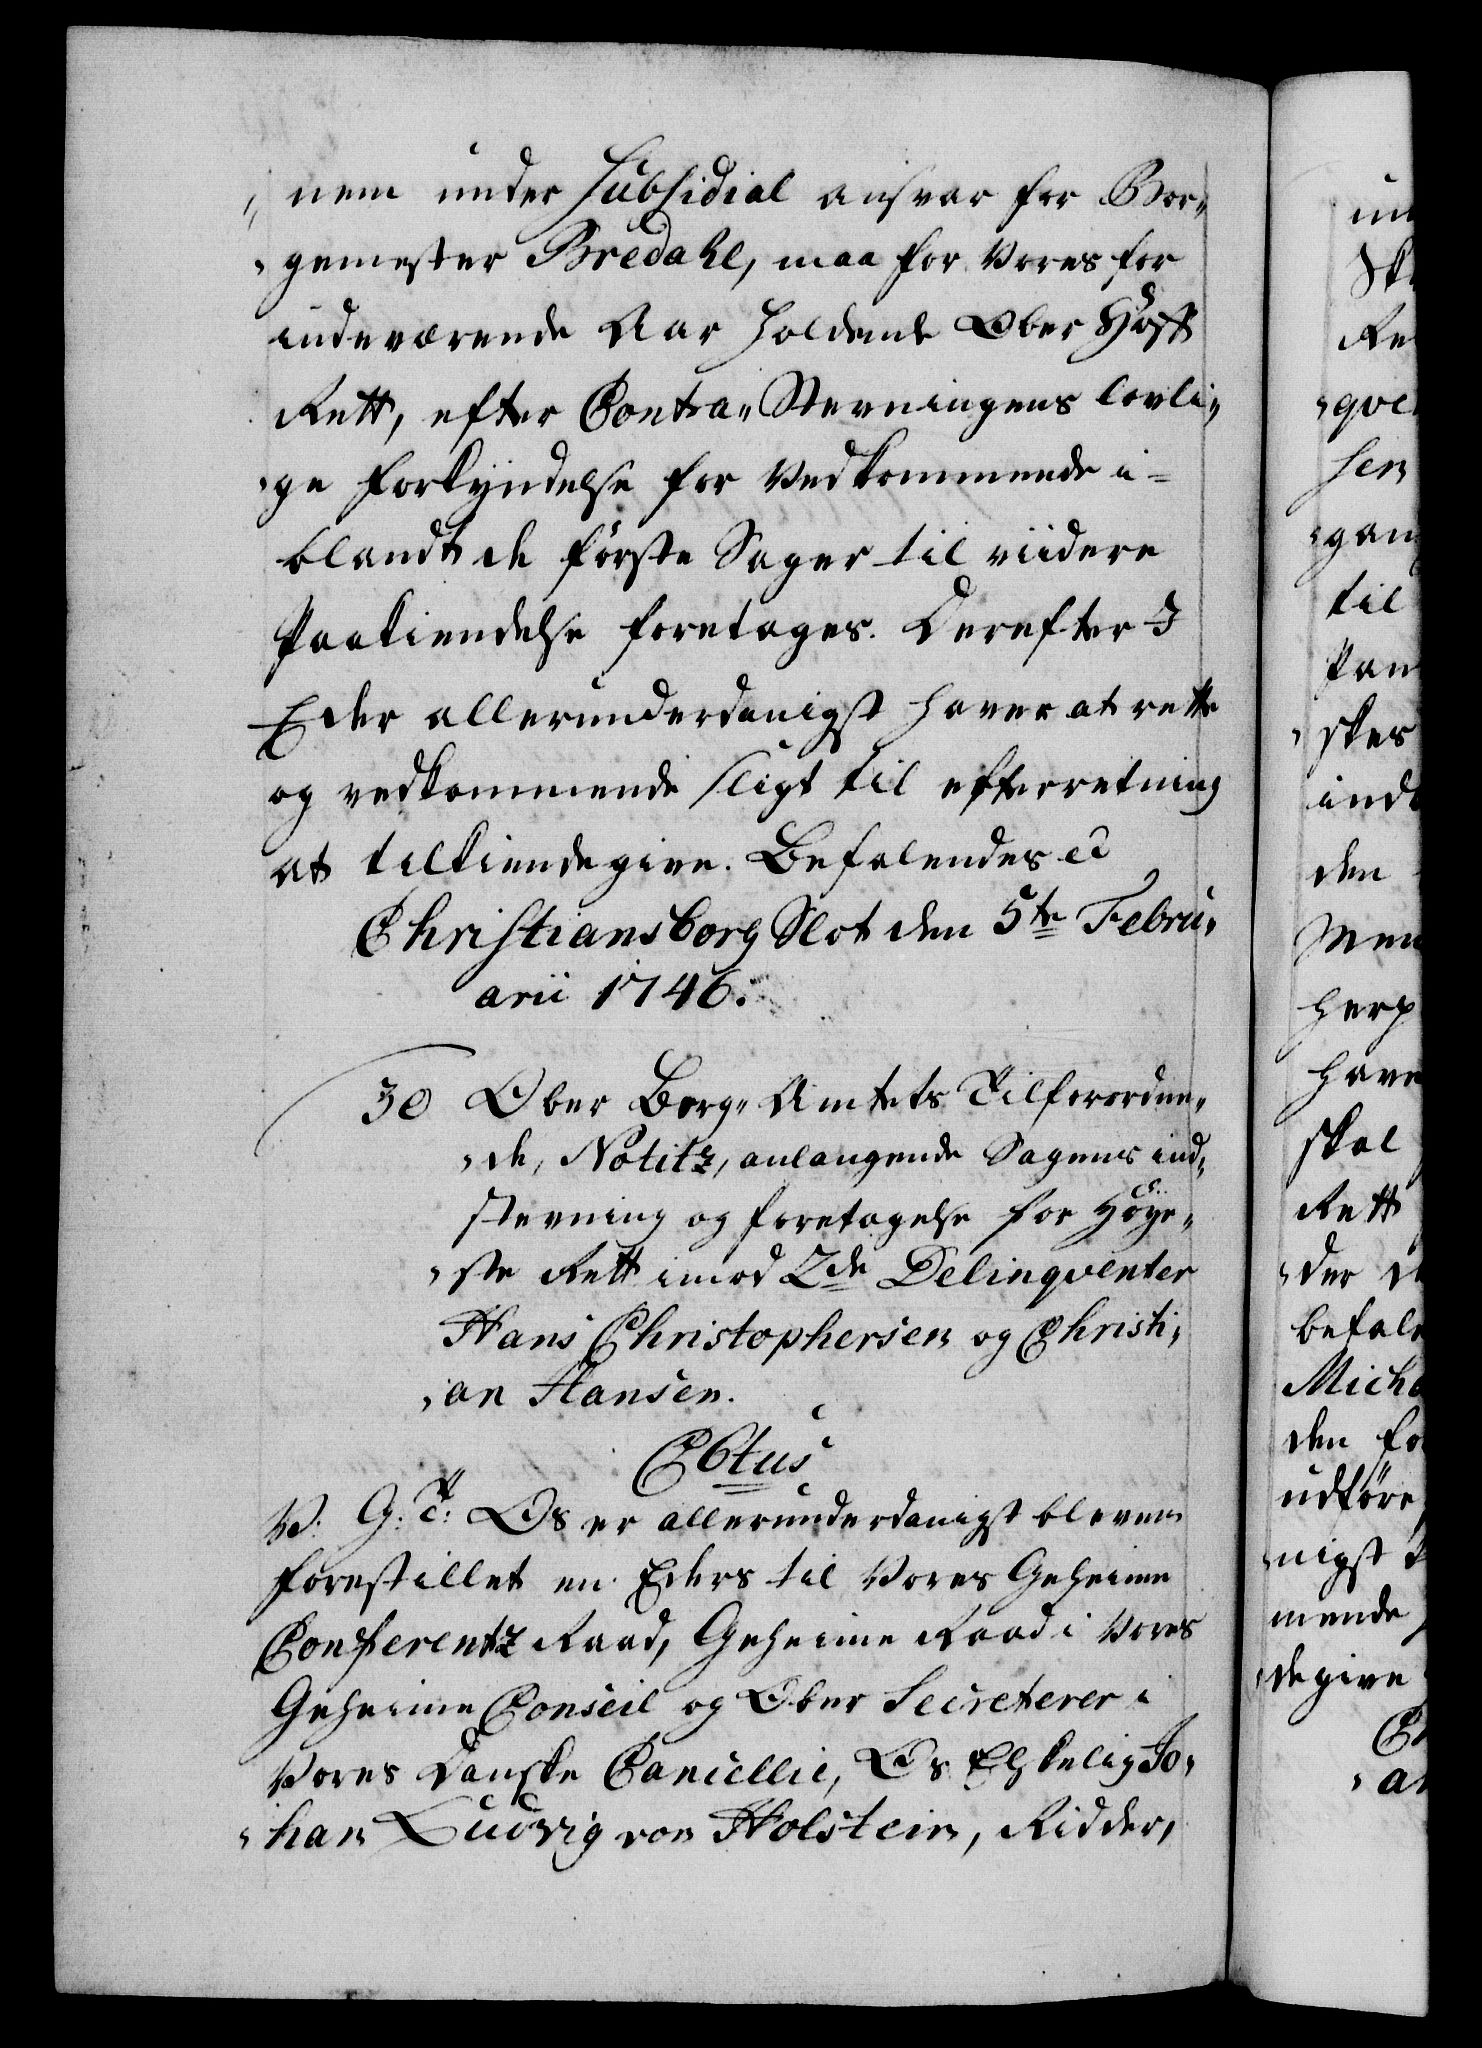 nem under Subsidial ansvar for Bor„
„gemester Bredahl, maa for Vores for
indeværende Aar holdende Ober Hoff
Rett, efter Contra„ Stevningens lovli„
„ge forkyndelse for Vedkommende i=
blandt de förste Sager til viidere
Paakiendelse foretages. Derefter I
Eder allerunderdanigst haver at rette
og vedkommende sligt til efterretning
at tilkiendegive. Befalendes etc
Christiansborg Slot den 5te Febru„
arii 1746.
30 Ober Berg„ Amtets Tilforordne„
„de, Notitz, anlangende Sagens ind„
stevning og foretagelse for Höye„
„ste Rett imod 2de Delinqventer
Hans Christophersen og Christi„
„an Hansen.
C6tus
V. G. T: Os er allerunderdanigst bleven
forestillet en Eders til Vores Geheime
Conferentz Raad, Geheime Raad i Vores
Geheime Conseil og Ober Secreterer i
Vores Danske Cancellie, Os Elskelig Jo„
„han Ludvig von Holstein, Ridder,
Ret
„qve
sen
til
skes
den
Men
have
skal
Rett
„der
befale
Mich
den fo
udföre
„nigst
mende
„degive